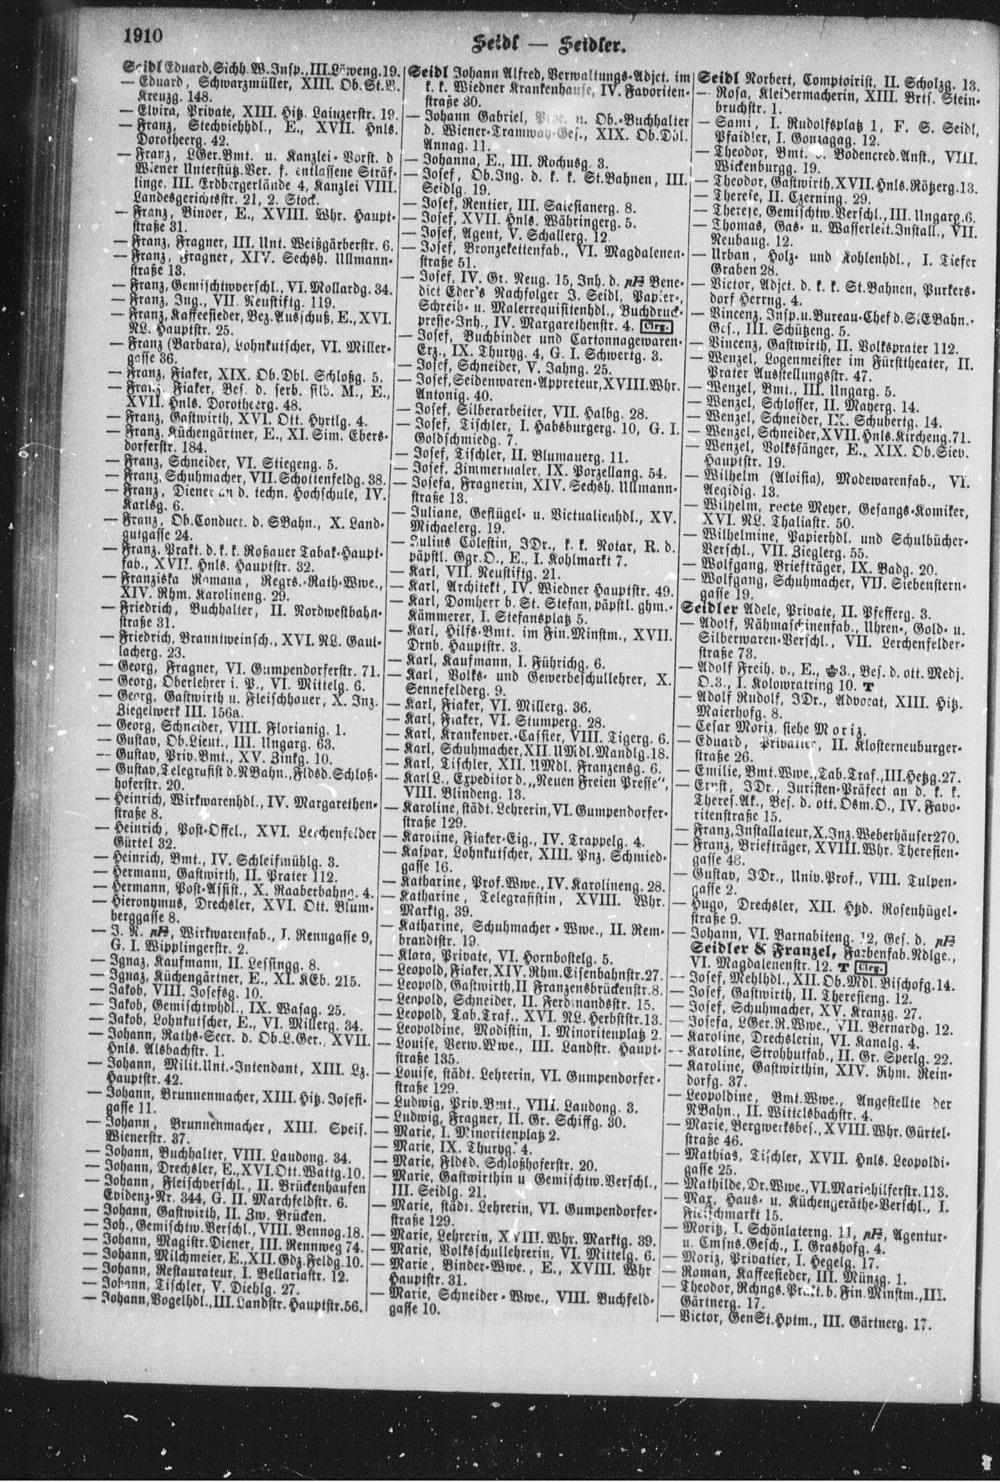 1910
Seidl — Seidler.
Seidl Eduard, Sichh. W. Insp., III. Löweng. 19.
— Eduard, Schwarzmüller, XIII. Ob. St. V.
Kreuzg. 148.
— Elvira, Private, XIII. Hitz. Lainzerstr. 19.
— Franz, Stechviehhdl., E., XVII. Hnls.
Dorotheerg. 42.
— Franz, LGer. Bmt. u. Kanzlei-Vorst. d
Wiener Unterstütz. Ver. f. entlassene Sträf-
linge, III. Erdbergerlände 4, Kanzlei VIII.
Landesgerichtsstr. 21, 2. Stock.
— Franz, Binder, E., XVIII. Whr. Haupt-
straße 31.
— Franz, Fragner, III. Unt. Weißgärberstr. 6.
— Franz, Fragner, XIV. Sechsh. Ullmann-
straße 13.
— Franz, Gemischtwverschl., VI. Mollardg. 34.
— Franz, Ing., VII. Neustiftg. 119.
— Franz, Kaffeesieder, Bez. Ausschuß, E., XVI.
NL. Hauptstr. 25.
— Franz (Barbara), Lohnkutscher, VI. Miller-
gasse 36.
— Franz, Fiaker, XIX. Ob. Dbl. Schloßg. 5.
— Franz, Fiaker, Bes. d. serb. silb. M., E.,
XVII. Hnls. Dorotheerg. 48.
— Franz, Gastwirth, XVI. Ott. Hyrtlg. 4.
— Franz, Küchengärtner, E., XI. Sim. Ebers-
dorferstr. 184.
— Franz, Schneider, VI. Stiegeng. 5.
— Franz, Schuhmacher, VII. Schottenfeldg. 38.
— Franz, Diener an d. techn. Hochschule, IV.
Karlsg. 6.
— Franz, Ob. Conduct. d. SBahn., X. Land-
gutgasse 24.
— Franz, Prakt. d. k. k. Roßauer Tabak-Haupt-
fab., XVII. Hnls. Hauptstr. 32.
— Franziska Romana, Regrs.-Rath-Wwe.,
XIV. Rhm. Karolineng. 29.
— Friedrich, Buchhalter, II. Nordwestbahn-
straße 31.
— Friedrich, Branntweinsch., XVI. NL. Gaul-
lacherg. 23.
— Georg, Fragner, VI. Gumpendorferstr. 71.
— Georg, Oberlehrer i. P., VI. Mittelg. 6.
— Georg, Gastwirth u. Fleischhauer, X. Inz.
Ziegelwerk III. 156a.
— Georg, Schneider, VIII. Florianig. 1.
— Gustav, Ob. Lieut., III. Ungarg. 63.
— Gustav, Priv. Bmt., XV. Zinkg. 10.
— Gustav, Telegrafist d. NBahn., Fldsd. Schloß-
hoferstr. 20.
— Heinrich, Wirkwarenhdl., IV. Margarethen-
straße 8.
— Heinrich, Post-Offcl., XVI. Lerchenfelder
Gürtel 32.
— Heinrich, Bmt., IV. Schleifmühlg. 3.
— Hermann, Gastwirth, II. Prater 112.
— Hermann, Post-Assist., X. Raaberbahng. 4.
— Hieronymus, Drechsler, XVI. Ott. Blum-
berggasse 8.
— J. N., Wirkwarenfab., I. Renngasse 9,
G. I. Wipplingerstr. 2.
— Ignaz, Kaufmann, II. Lessingg. 8.
— Ignaz, Küchengärtner, E., XI. KEb. 215.
— Jakob, VIII. Josefsg. 10.
— Jakob, Gemischtwhdl., IX. Wasag. 25.
— Jakob, Lohnkutscher, E., VI. Millerg. 34.
— Johann, Raths-Secr. d. Ob. L. Ger., XVII.
Hnls. Alsbachstr. 1.
— Johann, Milit. Unt.-Intendant, XIII. Lz.
Hauptstr. 42.
— Johann, Brunnenmacher, XIII. Hitz. Josefi-
gasse 11.
— Johann, Brunnenmacher, XIII. Speis.
Wienerstr. 37.
— Johann, Buchhalter, VIII. Laudong. 34.
— Johann, Drechsler, E., XVI. Ott. Wattg. 10.
— Johann, Fleischverschl., II. Brückenhaufen
Evidenz-Nr. 344, G. II. Marchfeldstr. 6.
— Johann, Gastwirth, II. Zw. Brücken.
— Joh., Gemischtw. Verschl., VIII. Bennog. 18.
— Johann, Magistr. Diener, III. Rennweg 74.
— Johann, Milchmeier, E., XII. Gdz. Feldg. 10.
— Johann, Restaurateur, I. Bellariastr. 12.
— Johann, Tischler, V. Diehlg. 27.
— Johann, Vogelhdl., III. Landstr. Hauptstr. 56.
Seidl Johann Alfred, Verwaltungs-Adjct. im
k. k. Wiedner Krankenhause, IV. Favoriten-
straße 30.
— Johann Gabriel, n. Ob.-Buchhalter
d. Wiener-Tramway-Ges., XIX. Ob. Döl.
Annag. 11.
— Johanna, E., III. Rochusg. 3.
— Josef, Ob. Ing. d. k. k. St. Bahnen, III.
Seidlg. 19.
— Josef, Rentier, III. Salesianerg. 8.
— Josef, XVII. Hnls. Währingerg. 5.
— Josef, Agent, V. Schallerg. 12.
— Josef, Bronzekettenfab., VI. Magdalenen-
straße 51.
— Josef, IV. Gr. Neug. 15, Inh. d. Bene-
dict Eder's Nachfolger J. Seidl, Papier-,
Schreib- u. Malerrequisitenhdl., Buchdruck-
presse-Inh., IV. Margarethenstr. 4. Clrg.
— Josef, Buchbinder und Cartonnagewaren-
Erz., IX. Thuryg. 4, G. I. Schwertg. 3.
— Josef, Schneider, V. Jahng. 25.
— Josef, Seidenwaren-Appreteur, XVIII. Whr.
Antonig. 40.
— Josef, Silberarbeiter, VII. Halbg. 28.
— Josef, Tischler, I. Habsburgerg. 10, G. I.
Goldschmiedg. 7.
— Josef, Tischler, II. Blumauerg. 11.
— Josef, Zimmermaler, IX. Porzellang. 54.
— Josefa, Fragnerin, XIV. Sechsh. Ullmann-
straße 13.
— Juliane, Geflügel- u. Victualienhdl., XV.
Michaelerg. 19.
— Julius Cölestin, JDr., k. k. Notar, R. d.
päpstl. Ggr. O., E., I. Kohlmarkt 7.
— Karl, VII. Neustiftg. 21.
— Karl, Architekt, IV. Wiedner Hauptstr. 49.
— Karl, Domherr b. St. Stefan, päpstl. ghm.-
Kämmerer, I. Stefansplatz 5.
— Karl, Hilfs-Bmt. im Fin. Minstm., XVII.
Drnb. Hauptstr. 3.
— Karl, Kaufmann, I. Führichg. 6.
— Karl, Volks- und Gewerbeschullehrer, X.
Sennefelderg. 9.
— Karl, Fiaker, VI. Millerg. 36.
— Karl, Fiaker, VI. Stumperg. 28.
— Karl, Krankenver.-Cassier, VIII. Tigerg. 6.
— Karl, Schuhmacher, XII. UMdl. Mandlg. 18.
— Karl, Tischler, XII. UMdl. Franzensg. 6.
— Karl L., Expeditor d. „Neuen Freien Presse“,
VIII. Blindeng. 13.
— Karoline, städt. Lehrerin, VI. Gumpendorfer-
straße 129.
— Karoline, Fiaker-Eig., IV. Trappelg. 4.
— Kaspar, Lohnkutscher, XIII. Pnz. Schmied-
gasse 16.
— Katharine, Prof. Wwe., IV. Karolineng. 28.
— Katharine, Telegrafistin, XVIII. Whr.
Marktg. 39.
— Katharine, Schuhmacher-Wwe., II. Rem-
brandtstr. 19.
— Klara, Private, VI. Hornbostelg. 5.
— Leopold, Fiaker, XIV. Rhm. Eisenbahnstr. 27.
— Leopold, Gastwirth, II Franzensbrückenstr. 8.
— Leopold, Schneider, II. Ferdinandsstr. 15.
— Leopold, Tab. Traf., XVI. NL. Herbststr. 13.
— Leopoldine, Modistin, I. Minoritenplatz 2.
— Louise, Verw. Wwe., III. Landstr. Haupt-
straße 135.
— Louise, städt. Lehrerin, VI. Gumpendorfer-
straße 129.
— Ludwig, Priv. Bmt., VIII. Laudong. 3.
— Ludwig, Fragner, II. Gr. Schiffg. 30.
— Marie, I. Minoritenplatz 2.
— Marie, IX. Thuryg. 4.
— Marie, Fldsd. Schloßhoferstr. 20.
— Marie, Gastwirthin u. Gemischtw. Verschl.,
III. Seidlg. 21.
— Marie, städt. Lehrerin, VI. Gumpendorfer-
straße 129.
— Marie, Lehrerin, XVIII. Whr. Marktg. 39.
— Marie, Volksschullehrerin, VI. Mittelg. 6.
— Marie, Binder-Wwe., E., XVIII. Whr
Hauptstr. 31.
— Marie, Schneider-Wwe., VIII. Buchfeld-
gasse 10.
Seidl Norbert, Comptoirist, II. Scholzg. 13.
— Rosa, Kleidermacherin, XIII. Brtf. Stein-
bruchstr. 1.
— Sami, I. Rudolfsplatz 1, F. S. Seidl,
Pfaidler, I. Gonzagag. 12.
— Theodor, Bmt. d. Bodencred. Anst., VIII.
Wickenburgg. 19.
— Theodor, Gastwirth, XVII. Hnls. Rötzerg. 13.
— Therese, II. Czerning. 29.
— Therese, Gemischtw. Verschl., III. Ungarg. 6.
— Thomas, Gas- u. Wasserleit. Install., VII.
Neubaug. 12.
— Urban, Holz- und Kohlenhdl., I. Tiefer
Graben 28.
— Victor, Adjct. d. k. k. St. Bahnen, Purkers-
dorf Herrng. 4.
— Vincenz, Insp. u. Bureau-Chef d. S. E Bahn.-
Ges., III. Schützeng. 5.
— Vincenz, Gastwirth, II. Volksprater 112.
— Wenzel, Logenmeister im Fürsttheater, II.
Prater Ausstellungsstr. 47.
— Wenzel, Bmt., III. Ungarg. 5.
— Wenzel, Schlosser, II. Mayerg. 14.
— Wenzel, Schneider, IX. Schubertg. 14.
— Wenzel, Schneider, XVII. Hnls. Kircheng. 71.
— Wenzel, Volkssänger, E., XIX. Ob. Siev.
Hauptstr. 19.
— Wilhelm (Aloisia), Modewarenfab., VI.
Aegidig. 13.
— Wilhelm, recte Meyer, Gesangs-Komiker,
XVI. NL. Thaliastr. 50.
— Wilhelmine, Papierhdl. und Schulbücher-
Verschl., VII. Zieglerg. 55.
— Wolfgang, Briefträger, IX. Badg. 20.
— Wolfgang, Schuhmacher, VII. Siebenstern-
gasse 19.
Seidler Adele, Private, II. Pfefferg. 3.
— Adolf, Nähmaschinenfab., Uhren-, Gold- u.
Silberwaren-Verschl., VII. Lerchenfelder-
straße 73.
— Adolf Freih. v., E., 3., Bes. d. ott. Medj.
O. 3., I. Kolowratring 10. T
— Adolf Rudolf, JDr., Advocat, XIII. Hitz.
Maierhofg. 8.
— Cesar Moriz, siehe Moriz.
— Eduard, Privatier, II. Klosterneuburger-
straße 26.
— Emilie, Bmt. Wwe., Tab. Traf., III. Hetzg. 27.
— Ernst, JDr., Juristen-Präfect an d. k. k.
Theres. Ak., Bes. d. ott. Osm. O., IV. Favo-
ritenstraße 15.
— Franz, Installateur, X. Inz. Weberhäuser 270.
— Franz, Briefträger, XVIII. Whr. Theresien-
gasse 48.
— Gustav, JDr., Univ. Prof., VIII. Tulpen-
gasse 2.
— Hugo, Drechsler, XII. Htzd. Rosenhügel-
straße 9.
— Johann, VI. Barnabiteng. 12, Ges. d.
Seidler & Franzel, Farbenfab. Ndlge.,
VI. Magdalenenstr. 12. T Clrg.
— Josef, Mehlhdl., XII. Ob. Mdl. Bischofg. 14.
— Josef, Gastwirth, II. Theresieng. 12.
— Josef, Schuhmacher, XV. Kranzg. 27.
— Josefa, LGer. R. Wwe., VII. Bernardg. 12.
— Karoline, Drechslerin, VI. Kanalg. 4.
— Karoline, Strohhutfab., II. Gr. Sperlg. 22.
— Karoline, Gastwirthin, XIV. Rhm. Rein-
dorfg. 37.
— Leopoldine, Bmt. Wwe., Angestellte der
NBahn., II. Wittelsbachstr. 4.
— Marie, Bergwerksbes., XVIII. Whr. Gürtel-
straße 46.
— Mathias, Tischler, XVII. Hnls. Leopoldi-
gasse 25.
— Mathilde, Dr. Wwe., VI. Mariahilferstr. 113.
— Max, Haus- u. Küchengeräthe-Verschl., I.
Fleischmarkt 15.
— Moritz, I. Schönlaterng. 11, Agentur-
u. Cmsns. Gesch., I. Grashofg. 4.
— Moriz, Privatier, I. Hegelg. 17.
— Roman, Kaffeesieder, III. Münzg. 1.
— Theodor, Rchngs. Prakt. b. Fin. Minstm., III.
Gärtnerg. 17.
— Victor, GenSt. Hptm., III. Gärtnerg. 17.